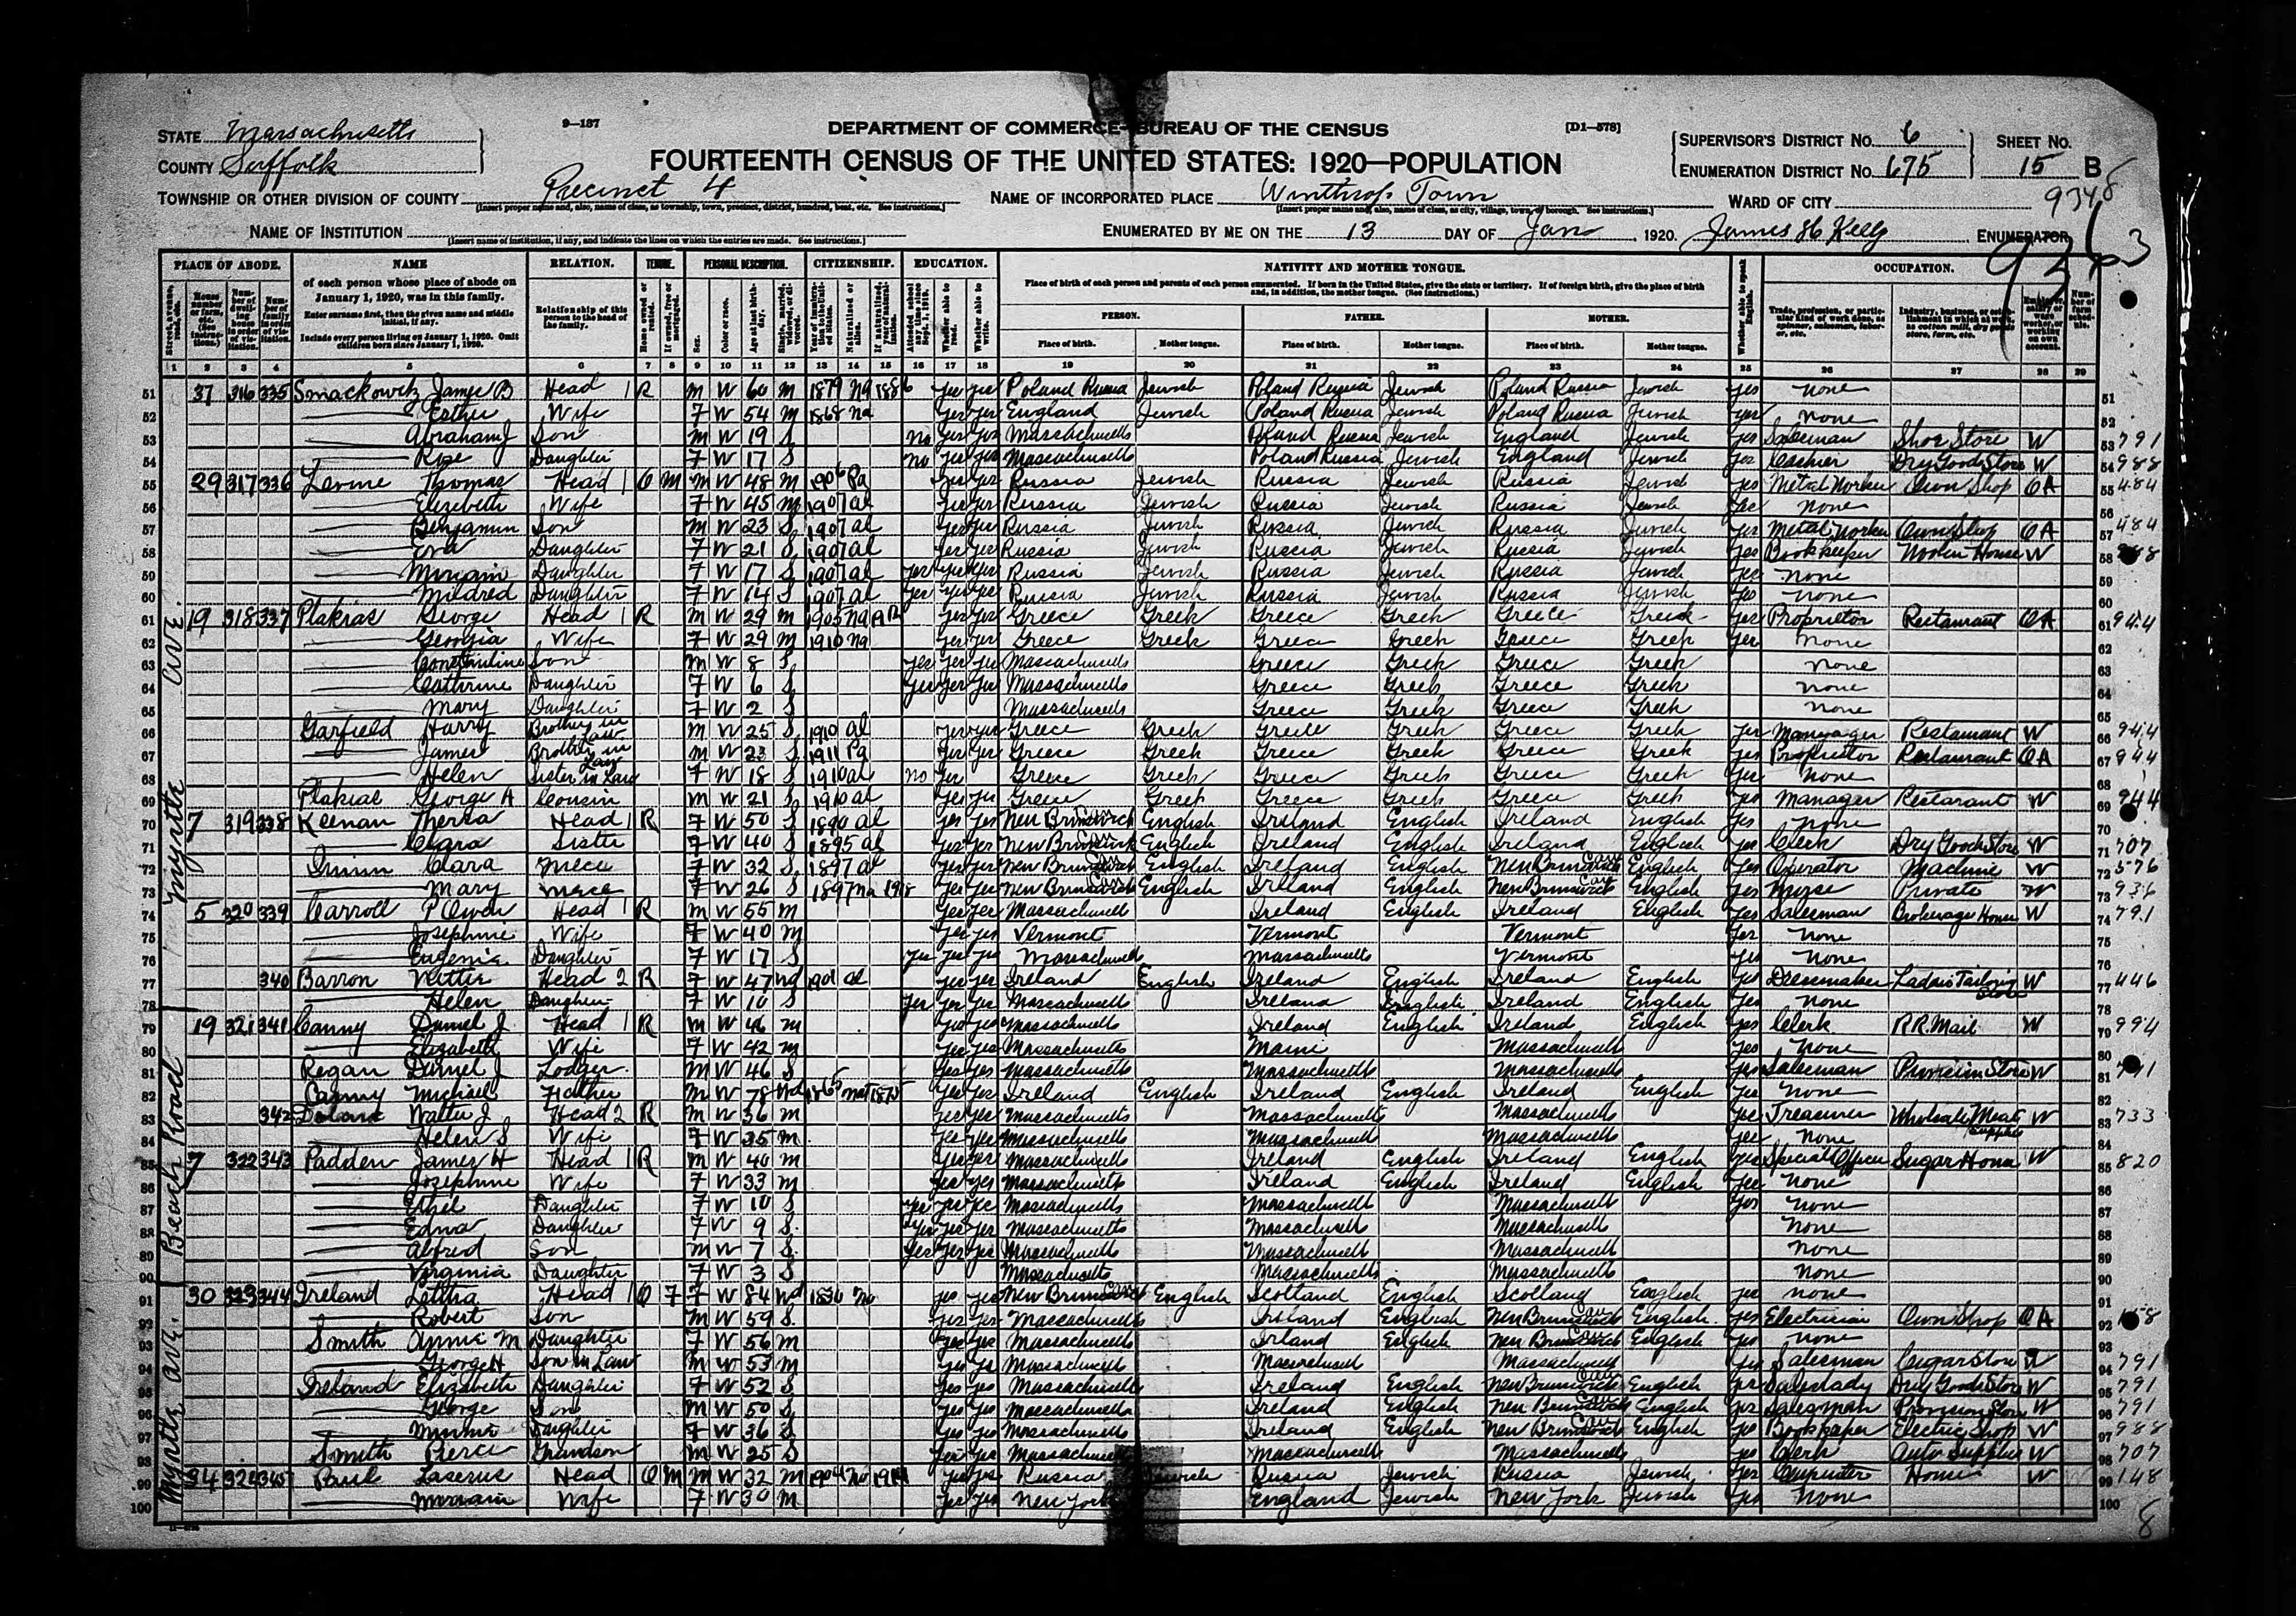 9—137
DEPARTMENT OF COMMERCE—BUREAU OF THE CENSUS
[D1—578]
STATE Massachusetts
COUNTY Suffolk
FOURTEENTH CENSUS OF THE UNITED STATES: 1920—POPULATION
SUPERVISOR'S DISTRICT No. 6
ENUMERATION DISTRICT No. 675
SHEET No. 15 B
9348
TOWNSHIP OR OTHER DIVISION OF COUNTY Precinct 4
NAME OF INCORPORATED PLACE Winthrop Town
WARD OF CITY
NAME OF INSTITUTION
[Insert name of institution, if any, and indicate the lines on which the entries are made. See instructions.]
ENUMERATED BY ME ON THE 13 DAY OF Jan, 1920. James H Kelly ENUMERATOR
PLACE OF ABODE. NAME RELATION. TENURE. PERSONAL DESCRIPTION. CITIZENSHIP. EDUCATION. NATIVITY AND MOTHER TONGUE. OCCUPATION.
of each person whose place of abode on January 1, 1920, was in this family.
Enter surname first, then the given name and middle initial, if any.
Include every person living on January 1, 1920. Omit children born since January 1, 1920.
Relationship of this person to the head of the family.
Place of birth of each person and parents of each person enumerated. If born in the United States, give the state or territory. If of foreign birth, give the place of birth and, in addition, the mother tongue. (See instructions.)
PERSON. FATHER. MOTHER.
Place of birth. Mother tongue. Place of birth. Mother tongue. Place of birth. Mother tongue.
1 2 3 4 5 6 7 8 9 10 11 12 13 14 15 16 17 18 19 20 21 22 23 24 25 26 27 28 29
Myrtle Ave.
51 37 316 335 James B Head 1 R M W 60 M 1879 Na 1886 Yes Yes Poland Russia Jewish Poland Russia Jewish Poland Russia Jewish Yes None
52 Esther Wife F W 54 M 1868 Na Yes Yes England Jewish Poland Russia Jewish Poland Russia Jewish Yes None
53 Abraham J Son M W 19 S No Yes Yes Massachusetts Poland Russia Jewish England Jewish Yes Salesman Shoe Store W 791
54 Rose Daughter F W 17 S No Yes Yes Massachusetts Poland Russia Jewish England Jewish Yes Cashier Dry Good Store W 988
55 29 317 336 Levine Thomas Head 1 O M M W 48 M 1906 Pa Yes Yes Russia Jewish Russia Jewish Russia Jewish Yes Metal Worker Own Shop OA 484
56 Elizebeth Wife F W 45 M 1907 al Yes Yes Russia Jewish Russia Jewish Russia Jewish Yes None
57 Benjamin Son M W 23 S 1907 al Yes Yes Russia Jewish Russia Jewish Russia Jewish Yes Metal Worker Own Shop OA 484
58 Eva Daughter F W 21 S 1907 al Yes Yes Russia Jewish Russia Jewish Russia Jewish Yes Bookkeeper Woolen House W
59 Daughter F W 17 S 1907 al Yes Yes Yes Russia Jewish Russia Jewish Russia Jewish Yes None
60 Mildred Daughter F W 14 S 1907 al Yes Yes Yes Russia Jewish Russia Jewish Russia Jewish Yes None
61 19 318 337 Plakias George Head 1 R M W 29 M 1905 Na Yes Yes Greece Greek Greece Greek Greece Greek Yes Proprietor Restaurant OA 944
62 Georgia Wife F W 29 M 1910 Na Yes Yes Greece Greek Greece Greek Greece Greek Yes None
63 Constantine Son M W 8 S Yes Yes Yes Massachusetts Greece Greek Greece Greek None
64 Cathrine Daughter F W 6 S Yes Yes Yes Massachusetts Greece Greek Greece Greek None
65 Mary Daughter F W 2 S Massachusetts Greece Greek Greece Greek None
66 Garfield Harry Brother in Law M W 25 S 1910 al Yes Yes Greece Greek Greece Greek Greece Greek Yes Manager Restaurant W 944
67 James Brother in Law M W 23 S 1911 Pa Yes Yes Greece Greek Greece Greek Greece Greek Yes Proprietor Restaurant OA 944
68 Helen Sister in Law F W 18 S 1910 al No Yes Greece Greek Greece Greek Greece Greek Yes None
69 Plakias George A Cousin M W 21 S 1910 al Yes Yes Greece Greek Greece Greek Greece Greek Yes Manager Restarant W 944
70 7 319 338 Keenan Theresa Head 1 R F W 50 S 1890 al Yes Yes New Brunswick English Ireland English Ireland English Yes None
71 Clara Sister F W 40 S 1895 al Yes Yes New Brunswick Can English Ireland English Ireland English Yes Clerk Dry Goods Store W 707
72 Quinn Clara Niece F W 32 S 1897 al Yes Yes New Brunswick Can English Ireland English New Brunswick Can English Yes Operator Machine W 576
73 Mary Niece F W 26 S 1897 Na 1918 Yes Yes New Brunswick Can English Ireland English New Brunswick Can English Yes Nurse Private W 936
74 5 320 339 Carroll P Owen Head 1 R M W 55 M Yes Yes Massachusetts Ireland English Ireland English Yes Salesman Brokerage House W 791
75 Josephine Wife F W 40 M Yes Yes Vermont Vermont Vermont Yes None
76 Eugenia Daughter F W 17 S Yes Yes Yes Massachusetts Massachusetts Vermont Yes None
77 340 Barron Nettie Head 2 R F W 47 Wd 1901 al Yes Yes Ireland English Ireland English Ireland English Yes Dressmaker Ladies Tailoring Store W 446
78 Helen Daughter F W 10 S Yes Yes Yes Massachusetts Ireland English Ireland English Yes None
Beach Road
79 19 321 341 Canny Daniel J Head 1 R M W 46 M Yes Yes Massachusetts Ireland English Ireland English Yes Clerk R.R. Mail W 994
80 Elizabeth Wife F W 42 M Yes Yes Massachusetts Maine Massachusetts Yes None
81 Regan Daniel J Lodger M W 46 S Yes Yes Massachusetts Massachusetts Massachusetts Yes Salesman Provision Store W
82 Canny Michael Father M W 78 Wd 1865 Nat 1875 Yes Yes Ireland English Ireland English Ireland English Yes None
83 342 Walter J Head 2 R M W 36 M Yes Yes Massachusetts Massachusetts Massachusetts Yes Treasurer Wholesale Meat Supplies W 733
84 Helen S Wife F W 35 M Yes Yes Massachusetts Massachusetts Massachusetts Yes None
85 7 322 343 Padden James H Head 1 R M W 40 M Yes Yes Massachusetts Ireland English Ireland English Yes Special Officer Sugar House W 820
86 Josephine Wife F W 33 M Yes Yes Massachusetts Ireland English Ireland English Yes None
87 Ethel Daughter F W 10 S Yes Yes Yes Massachusetts Massachusetts Massachusetts Yes None
88 Edna Daughter F W 9 S Yes Yes Yes Massachusetts Massachusetts Massachusetts None
89 Alfred Son M W 7 S Yes Yes Yes Massachusetts Massachusetts Massachusetts None
90 Virginia Daughter F W 3 S Massachusetts Massachusetts Massachusetts None
Myrtle Ave.
91 30 323 344 Ireland Letitia Head 1 O F F W 84 Wd 1836 Na Yes Yes New Brunswick Can English Scotland English Scotland English Yes None
92 Robert Son M W 59 S Yes Yes Massachusetts Ireland English New Brunswick Can English Yes Electrician Own Shop OA
93 Smith Annie M Daughter F W 56 M Yes Yes Massachusetts Irland English New Brunswick Can English Yes None
94 George H Son in Law M W 53 M Yes Yes Massachusetts Massachusetts Massachusetts Yes Salesman Cugar Store W 791
95 Ireland Elizabeth Daughter F W 52 S Yes Yes Massachusetts Ireland English New Brunswick Can English Yes Saleslady Dry Goods Store W 791
96 George Son M W 50 S Yes Yes Massachusetts Ireland English New Brunswick Can English Yes Salesman Provision Store W 791
97 Minnie Daughter F W 36 S Yes Yes Massachusetts Ireland English New Brunswick Can English Yes Bookkeper Electric Shop W 988
98 Smith Pierce Grandson M W 25 S Yes Yes Massachusetts Massachusetts Massachusetts Yes Clerk Auto Supplies W 707
99 34 324 345 Paul Lazerus Head 1 O M M W 32 M 1904 Na Yes Yes Russia Jewish Russia Jewish Russia Jewish Yes Carpenter House W 148
100 Miriam Wife F W 30 M Yes Yes New York England Jewish New York Jewish Yes None
8